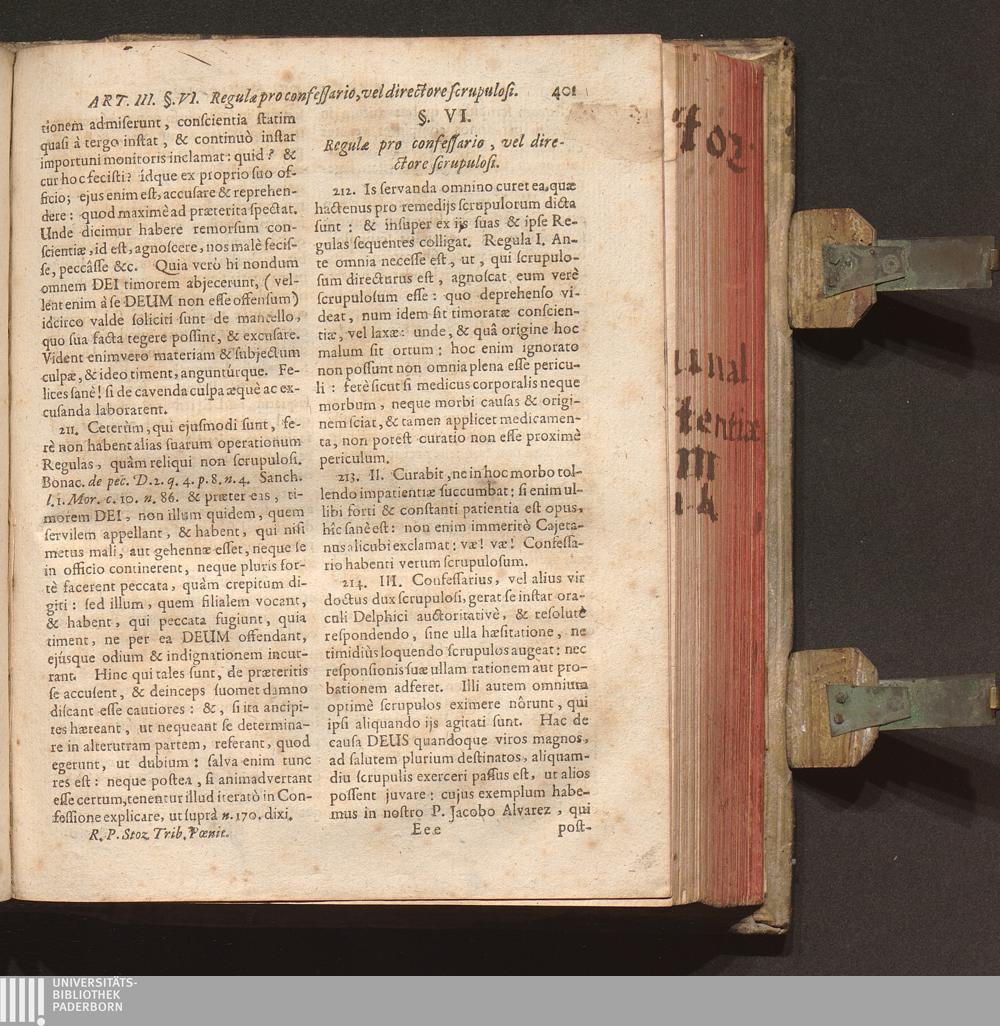 ART. III. §. VI. Regulæ pro confessario, vel directore scrupulosi. 401
tionem admiserunt, conscientia statim
quasi à tergo instat, & continuò instar
importuni monitoris inclamat: quid? &
cur hoc fecisti? idque ex proprio suo of-
ficio; ejus enim est, accusare & reprehen-
dere: quod maximè ad præterita spectat.
Unde dicimur habere remorsum con-
scientiæ, id est, agnoscere, nos malè fecis-
se, peccâsse &c. Quia verò hi nondum
omnem DEI timorem abjecerunt, (vel-
lent enim à se DEUM non esse offensum)
idcirco valde soliciti sunt de mantello,
quo sua facta tegere possint, & excusare.
Vident enimvero materiam & subjectum
culpæ, & ideo timent, angunturque. Fe-
lites sanè! si de cavenda culpa æquè ac ex-
cusanda laborarent.
211. Ceterùm, qui ejusmodi sunt, fe-
rè non habent alias suarum operationum
Regulas, quàm reliqui non scrupulosi.
Bonac. de pec. D. 2. q. 4. p. 8. n. 4. Sanch.
l. 1. Mor. c. 10. n. 86. & præter eas, ti-
morem DEI, non illum quidem, quem
servilem appellant, & habent, qui nisi
metus mali, aut gehennæ esset, neque se
in officio continerent, neque pluris for-
tè facerent peccata, quàm crepitum di-
giti: sed illum, quem filialem vocant,
& habent, qui peccata fugiunt, quia
timent, ne per ea DEUM offendant,
ejúsque odium & indignationem incur-
rant. Hinc qui tales sunt, de præteritis
se accusent, & deinceps suomet damno
discant esse cautiores: &, si ita ancipi-
tes hæreant, ut nequeant se determina-
re in alterutram partem, referant, quod
egerunt, ut dubium: salva enim tunc
res est: neque postea, si animadvertant
esse certum, tenentur illud iteratò in Con-
fessione explicare, ut suprà n. 170. dixi.
R. P. Stoz Trib. Pœnit.
§. VI.
Regulæ pro confessario, vel dire-
ctore scrupulosi.
212. Is servanda omnino curet ea, quæ
hactenus pro remedijs scrupulorum dicta
sunt: & insuper ex ijs suas & ipse Re-
gulas sequentes colligat. Regula I. An-
te omnia necesse est, ut, qui scrupulo-
sum directurus est, agnoscat eum verè
scrupulosum esse: quo deprehenso vi-
deat, num idem sit timoratæ conscien-
tiæ, vel laxæ: unde, & quâ origine hoc
malum sit ortum: hoc enim ignorato
non possunt non omnia plena esse pericu-
li: ferè sicut si medicus corporalis neque
morbum, neque morbi causas & origi-
nem sciat, & tamen applicet medicamen-
ta, non potest curatio non esse proximè
periculum.
213. II. Curabit, ne in hoc morbo tol-
lendo impatientiæ succumbat: si enim ul-
libi forti & constanti patientia est opus,
hîc sanè est: non enim immeritò Cajeta-
nus alicubi exclamat: væ! væ! Confessa-
rio habenti verum scrupulosum.
214. III. Confessarius, vel alius vir
doctus dux scrupulosi, gerat se instar ora-
culi Delphici auctoritativè, & resolutè
respondendo, sine ulla hæsitatione, ne
timidiùs loquendo scrupulos augeat: nec
responsionis suæ ullam rationem aut pro-
bationem adferet. Illi autem omnium
optimè scrupulos eximere nôrunt, qui
ipsi aliquando ijs agitati sunt. Hac de
causa DEUS quandoque viros magnos,
ad salutem plurium destinatos, aliquam-
diu scrupulis exerceri passus est, ut alios
possent juvare: cujus exemplum habe-
mus in nostro P. Jacobo Alvarez, qui
Eee post-
UNIVERSITÄTS-
BIBLIOTHEK
PADERBORN